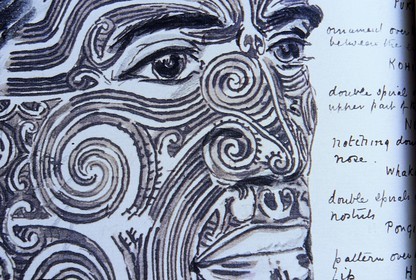 ornament over
between the
KOH
double spiral
upper part
N
notching dow
nose.
Whak
double spirals
nostrils
Pong
pattern over
lip